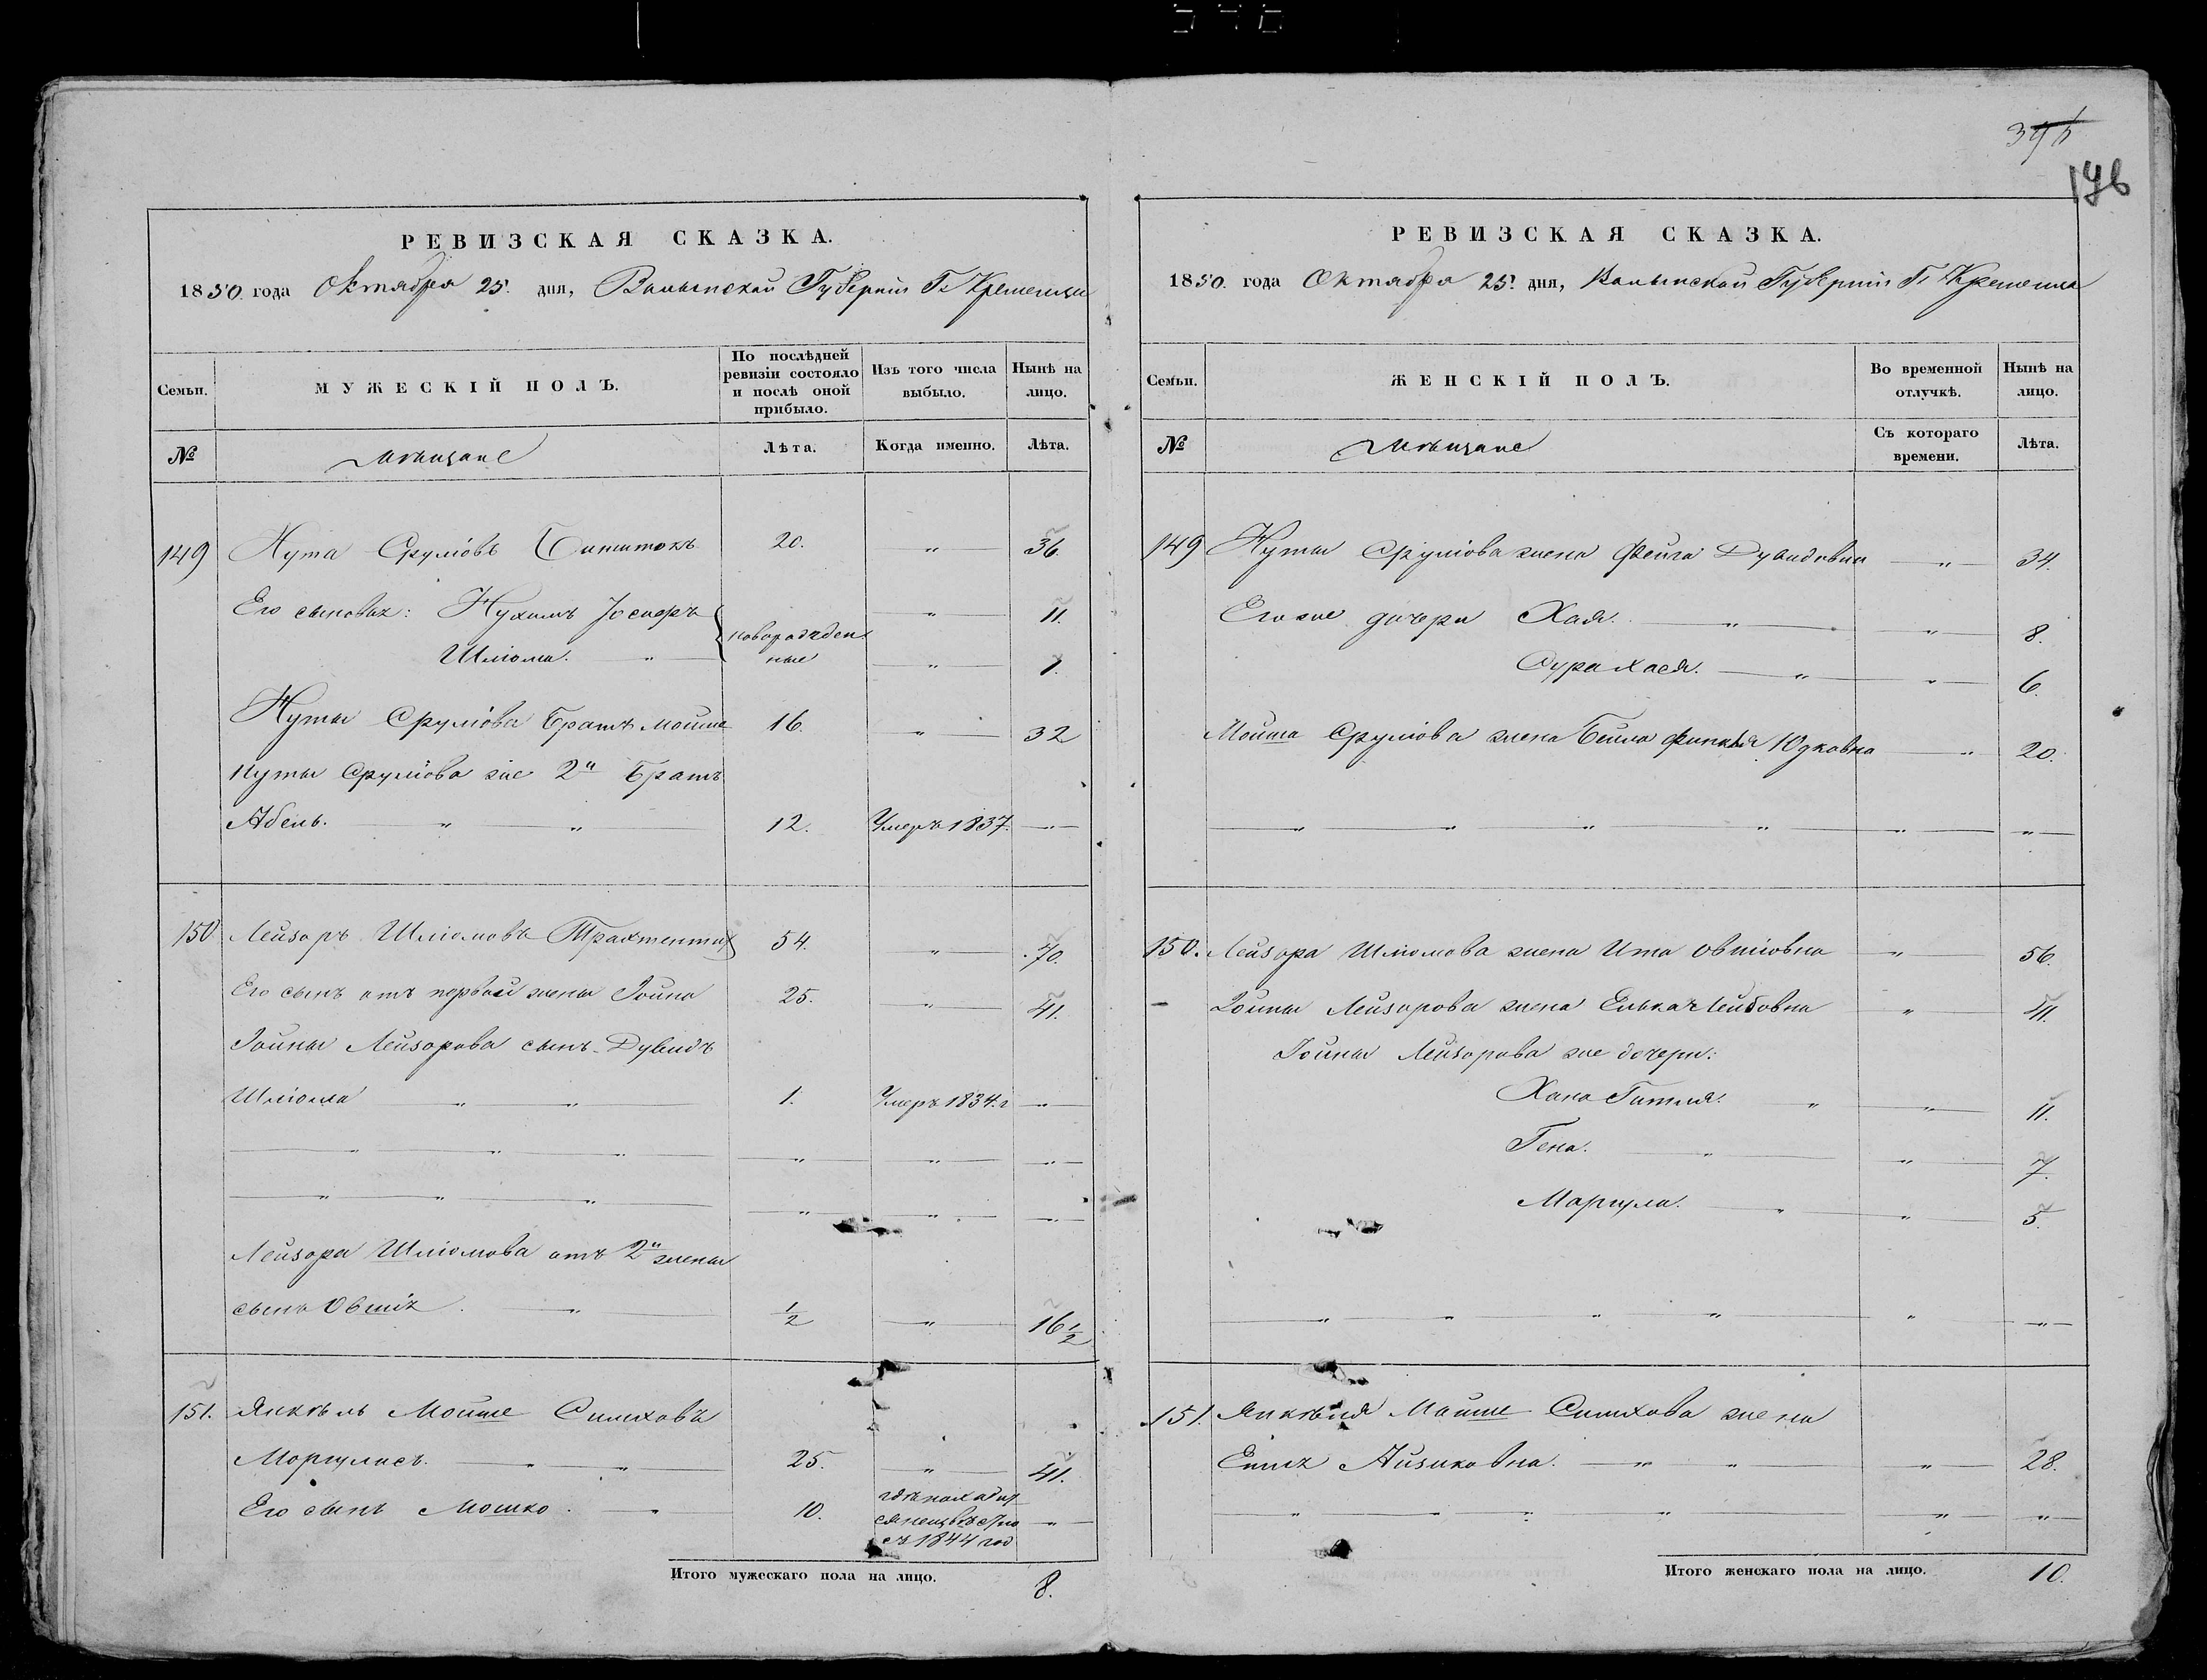 396
196
РЕВИЗСКАЯ СКАЗКА.
1850. года Октября 25. дня, Волынской Губерніи Г. Кременца
Семьи. МУЖЕСКІЙ ПОЛЪ. По послѣдней ревизіи состояло и послѣ оной прибыло. Изъ того числа выбыло. Нынѣ на лицо.
№ Мѣщане Лѣта. Когда именно. Лѣта.
149 Нута Сруліовъ 20. „ 36.
Его сыновья: Нухимъ Іосифъ новорожден „ 11.
Шліома. „ ные „ 7.
Нуты Сруліова братъ Мойше 16. „ 32
Нуты Сруліова же 2й братъ
Абель. „ „ 12. Умеръ 1837. „
150 Лейзоръ Шліомовъ 54. „ 70.
Его сынъ отъ первой жены Іойна 25. „ 41.
Іойны Лейзорова сынъ Дувидъ
Шліома „ „ 1. Умеръ 1834. г „
„ „ „ „ „ „
„ „ „ „ „ „
Лейзора Шліомова отъ 2й жены
сынъ Овшія „ 1/2 „ 16 1/2
151. Янкель Мойше Симховъ
Моргулисъ. „ „ 25. „ 41.
Его сынъ Мошко. „ 10. „
съ 1844 год
Итого мужескаго пола на лицо. 8.
РЕВИЗСКАЯ СКАЗКА.
1850. года Октября 25. дня, Волынской Губерніи Г. Кременца
Семьи. ЖЕНСКІЙ ПОЛЪ. Во временной отлучкѣ. Нынѣ на лицо.
№ Мѣщане Съ котораго времени. Лѣта.
149 Нуты Сруліова жена Фейга Дувидовна „ 34.
Его же дочери Хая. „ „ 8.
Сура Хася. „ „ 6.
Мойша Сруліова жена Бейла Юдковна „ 20.
„ „ „ „ „ „
150. Лейзора Шліомова жена Ита Овшіовна „ 56.
Іойны Лейзорова жена Елька Лейбовна „ 41.
Іойны Лейзорова же дочери:
Хана Гитля. „ „ 11.
Гена. „ „ 7.
Маргуля. „ „ 5.
„ „ „ „ „ „
151. Янкеля Мойше Симхова жена
Айзиковна. „ „ „ 28.
„ „ „ „ „ „
Итого женскаго пола на лицо. 10.